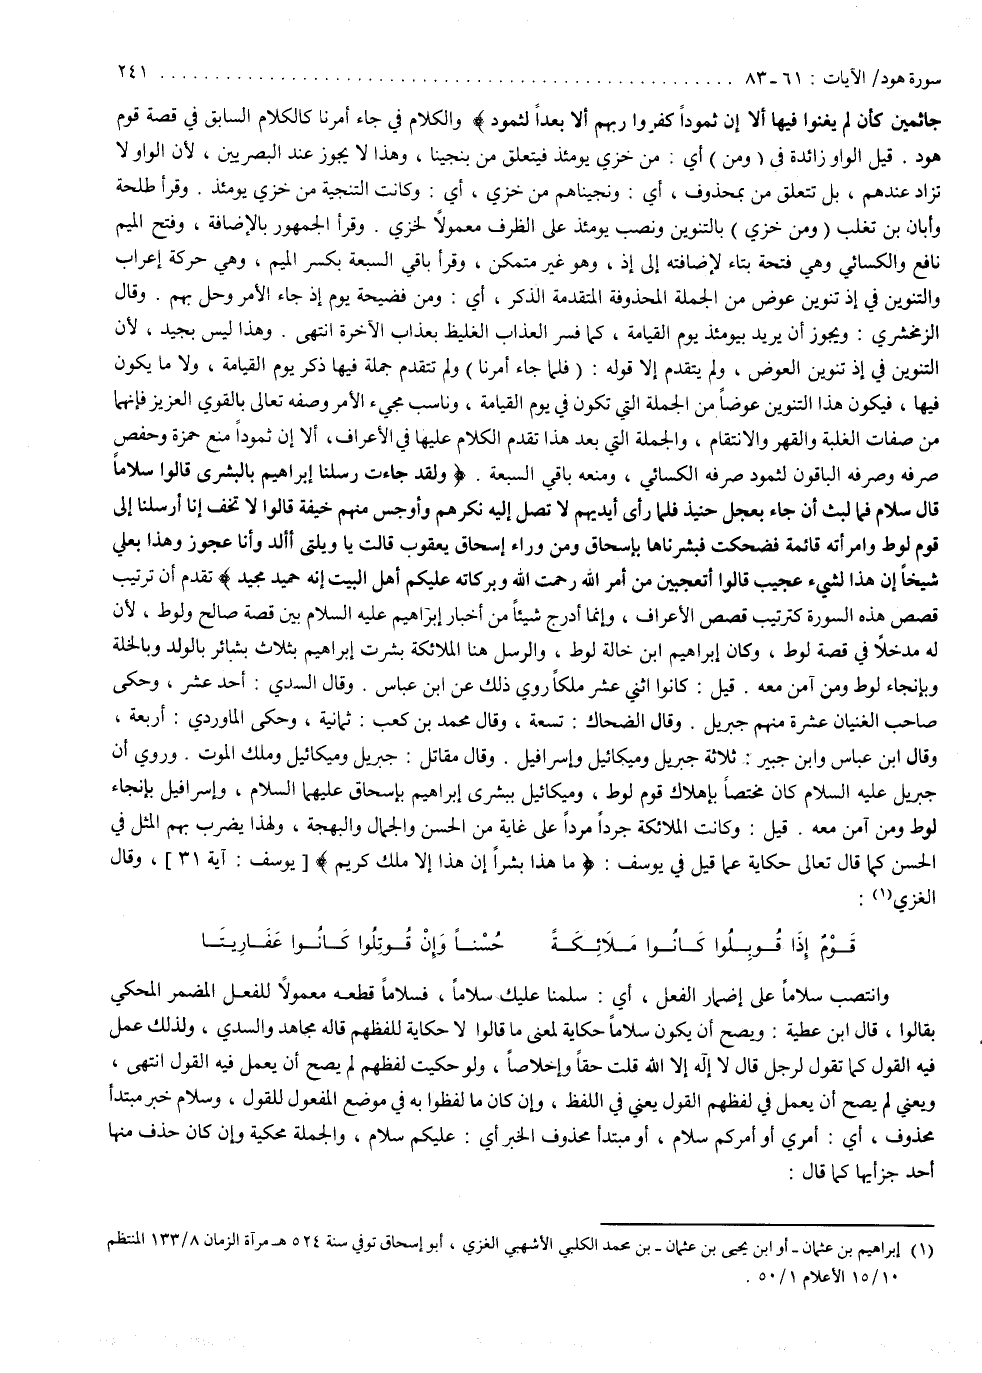 سورة هود/ الآيات : ٦١ـ٨٣ ........................................................ ٢٤١
جاثمين كأن لم يغنوا فيها ألا إن ثموداً كفروا ربهم ألا بعداً لثمود ﴾ والكلام في جاء أمرنا كالكلام السابق في قصة قوم
هود . قيل الواو زائدة في ( ومن ) أي : من خزي يومئذ فيتعلق من بنجينا ، وهذا لا يجوز عند البصريين ، لأن الواو لا
تزاد عندهم ، بل تتعلق من بمحذوف ، أي : ونجيناهم من خزي ، أي : وكانت التنجية من خزي يومئذ . وقرأ طلحة
وأبان بن تغلب ( ومن خزي ) بالتنوين ونصب يومئذ على الظرف معمولاً لخزي . وقرأ الجمهور بالإضافة ، وفتح الميم
نافع والكسائي وهي فتحة بناء لإضافته إلى إذ ، وهو غير متمكن ، وقرأ باقي السبعة بكسر الميم ، وهي حركة إعراب
والتنوين في إذ تنوين عوض من الجملة المحذوفة المتقدمة الذكر ، أي : ومن فضيحة يوم إذ جاء الأمر وحل بهم . وقال
الزمخشري : ويجوز أن يريد بيومئذ يوم القيامة ، كما فسر العذاب الغليظ بعذاب الآخرة انتهى . وهذا ليس بجيد ، لأن
التنوين في إذ تنوين العوض ، ولم يتقدم إلا قوله : ( فلما جاء أمرنا ) ولم تتقدم جملة فيها ذكر يوم القيامة ، ولا ما يكون
فيها ، فيكون هذا التنوين عوضاً من الجملة التي تكون في يوم القيامة ، وناسب مجيء الأمر وصفه تعالى بالقوي العزيز فإنهما
من صفات الغلبة والقهر والانتقام ، والجملة التي بعد هذا تقدم الكلام عليها في الأعراف، ألا إن ثموداً منع حمزة وحفص
صرفه وصرفه الباقون لثمود صرفه الكسائي ، ومنعه باقي السبعة . ﴿ ولقد جاءت رسلنا إبراهيم بالبشرى قالوا سلاماً
قال سلام فما لبث أن جاء بعجل حنيذ فلما رأى أيديهم لا تصل إليه نكرهم وأوجس منهم خيفة قالوا لا تخف إنا أرسلنا إلى
قوم لوط وامرأته قائمة فضحكت فبشرناها بإسحاق ومن وراء إسحاق يعقوب قالت يا ويلتى أألد وأنا عجوز وهذا بعلي
شيخاً إن هذا لشيء عجيب قالوا أتعجبين من أمر الله رحمت الله وبركاته عليكم أهل البيت إنه حميد مجيد ﴾ تقدم أن ترتيب
قصص هذه السورة كترتيب قصص الأعراف ، وإنما أدرج شيئاً من أخبار إبراهيم عليه السلام بين قصة صالح ولوط ، لأن
له مدخلاً في قصة لوط ، وكان إبراهيم ابن خالة لوط ، والرسل هنا الملائكة بشرت إبراهيم بثلاث بشائر بالولد وبالخلة
وبإنجاء لوط ومن آمن معه . قيل : كانوا اثني عشر ملكاً روي ذلك عن ابن عباس . وقال السدي : أحد عشر ، وحكى
صاحب الغنيان عشرة منهم جبريل . وقال الضحاك : تسعة ، وقال محمد بن كعب : ثمانية ، وحكى الماوردي : أربعة ،
وقال ابن عباس وابن جبير : ثلاثة جبريل وميكائيل وإسرافيل . وقال مقاتل : جبريل وميكائيل وملك الموت . وروي أن
جبريل عليه السلام كان مختصاً بإهلاك قوم لوط ، وميكائيل ببشرى إبراهيم بإسحاق عليهما السلام ، وإسرافيل بإنجاء
لوط ومن آمن معه . قيل : وكانت الملائكة جرداً مرداً على غاية من الحسن والجمال والبهجة ، ولهذا يضرب بهم المثل في
الحسن كما قال تعالى حكاية عما قيل في يوسف : ﴿ ما هذا بشراً إن هذا إلا ملك كريم ﴾ [ يوسف : آية ٣١ ] ، وقال
الغزي(١) :
قَوْمٌ إِذَا قُوبِلُوا كَانُوا مَلَائِكَةً حُسْناً وَإِنْ قُوتِلُوا كَانُوا عَفَارِيتَا
وانتصب سلاماً على إضمار الفعل ، أي : سلمنا عليك سلاماً ، فسلاماً قطعه معمولاً للفعل المضمر المحكي
بقالوا ، قال ابن عطية : ويصح أن يكون سلاماً حكاية لمعنى ما قالوا لا حكاية للفظهم قاله مجاهد والسدي ، ولذلك عمل
فيه القول كما تقول لرجل قال لا إلٓه إلا الله قلت حقاً وإخلاصاً ، ولو حكيت لفظهم لم يصح أن يعمل فيه القول انتهى ،
ويعني لم يصح أن يعمل في لفظهم القول يعني في اللفظ ، وإن كان ما لفظوا به في موضع المفعول للقول ، وسلام خبر مبتدأ
محذوف ، أي : أمري أو أمركم سلام ، أو مبتدأ محذوف الخبر أي : عليكم سلام ، والجملة محكية وإن كان حذف منها
أحد جزأيها كما قال :
(١) إبراهيم بن عثمان ـ أو ابن يحيى بن عثمان ـ بن محمد الكلبي الأشهبي الغزي ، أبو إسحاق توفي سنة ٥٢٤ هـ مرآة الزمان ١٣٣/٨ المنتظم
١٥/١٠ الأعلام ٥٠/١ .